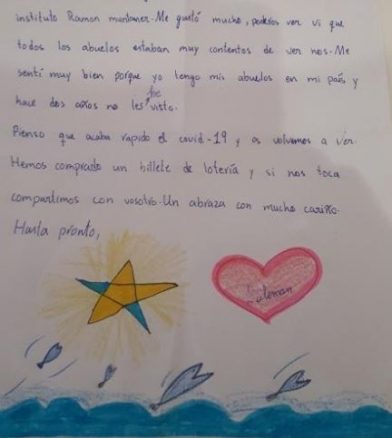 instituto Ramon montaner. Me gustó mucho, poderos ver vi que
todos los abuelos estaban muy contentos de ver nos. Me
sentí muy bien porque yo tengo mis abuelos en mi país y
hace dos años no les he visto.
Pienso que acaba rapido el covid-19 y os volvemos a ver.
Hemos comprado un billete de lotería y si nos toca
compartimos con vosotros. Un abrazo con mucho cariño.
Hasta pronto,